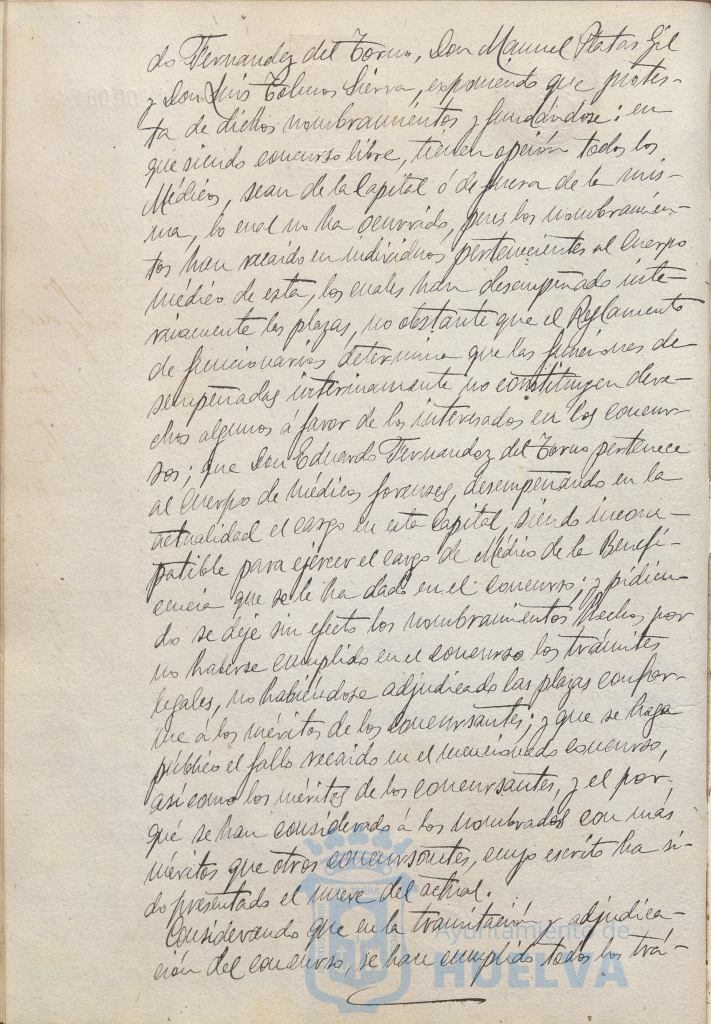 do Fernandez del Torno, Don Manuel Platas Gil
y Don Luis Tolmos Sierra, exponiendo que protes-
ta de dichos nombramientos y fundándose: en
que siendo concurso libre, tienen opción todos los
Médicos, sean de la Capital ó de fuera de la mis-
ma, lo cual no ha ocurrido, pues los nombramien-
tos han recaido en individuos pertenecientes al Cuerpo
médico de esta, los cuales han desempeñado inte-
rinamente las plazas, no obstante que el Reglamento
de funcionarios determina que las funciones de
sempeñadas interinamente no constituyen dere-
chos algunos á favor de los interesados en los concur-
sos; que Don Eduardo Fernandez del Torno pertenece
al Cuerpo de Médicos forenses, desempeñando en la
actualidad el cargo en esta Capital, siendo incom-
patible para ejercer el cargo de Médico de la Benefi-
cencia que se le ha dado en el concurso; y pidien-
do se deje sin efecto los nombramientos hechos por
no haberse cumplido en el concurso los trámites
legales, no habiéndose adjudicado las plazas confor-
me á los méritos de los concursantes; y que se haga
público el fallo recaido en el mencionado concurso,
así como los méritos de los concursantes, y el por-
qué se han considerado á los nombrados con más
méritos que otros concursantes, cuyo escrito ha si-
do presentado el nueve del actual.
Considerando que en la tramitación y adjudica-
ción del concurso, se han cumplido todos los trá-
Ayuntamiento de
HUELVA